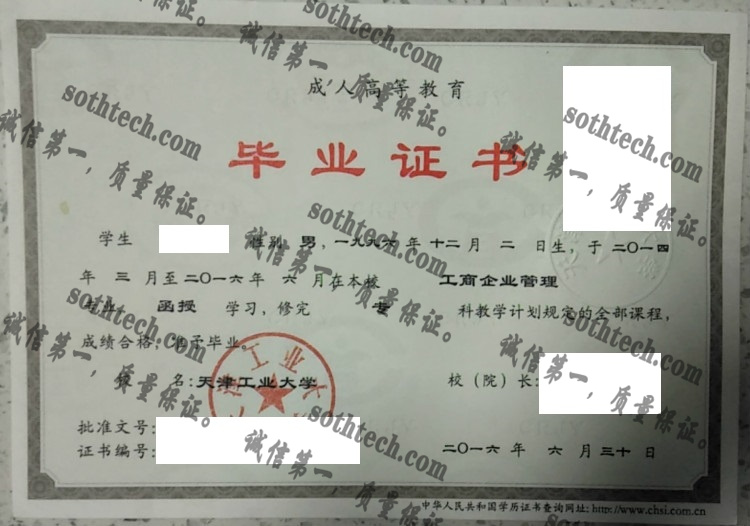 成人高等教育
毕业证书
学生 性别 男，一九九六年十二月 二 日生，于二〇一四
年 三 月至二〇一六年 六 月在本校 工商企业管理
专业 函授 学习，修完 专 科教学计划规定的全部课程，
成绩合格，准予毕业。
校 名：天津工业大学 校（院）长：
批准文号：
证书编号： 二〇一六 年 六 月三十日
中华人民共和国学历证书查询网址：http://www.chsi.com.cn
sothtech.com
诚信第一，质量保证。
sothtech.com
诚信第一，质量保证。
sothtech.com
诚信第一，质量保证。
sothtech.com
诚信第一，质量保证。
sothtech.com
诚信第一，质量保证。
sothtech.com
诚信第一，质量保证。
sothtech.com
诚信第一，质量保证。
sothtech.com
诚信第一，质量保证。